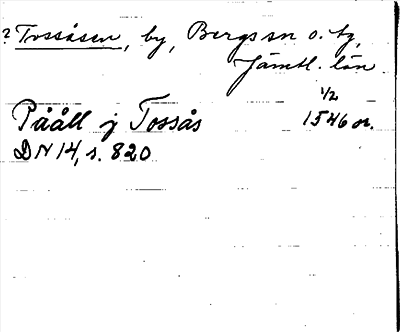 ? Tossåsen, by, Bergs sn o. tg,
Jämtl. län.
1/2
Pååll j Tossås 1546 or.
DN 14, s. 820